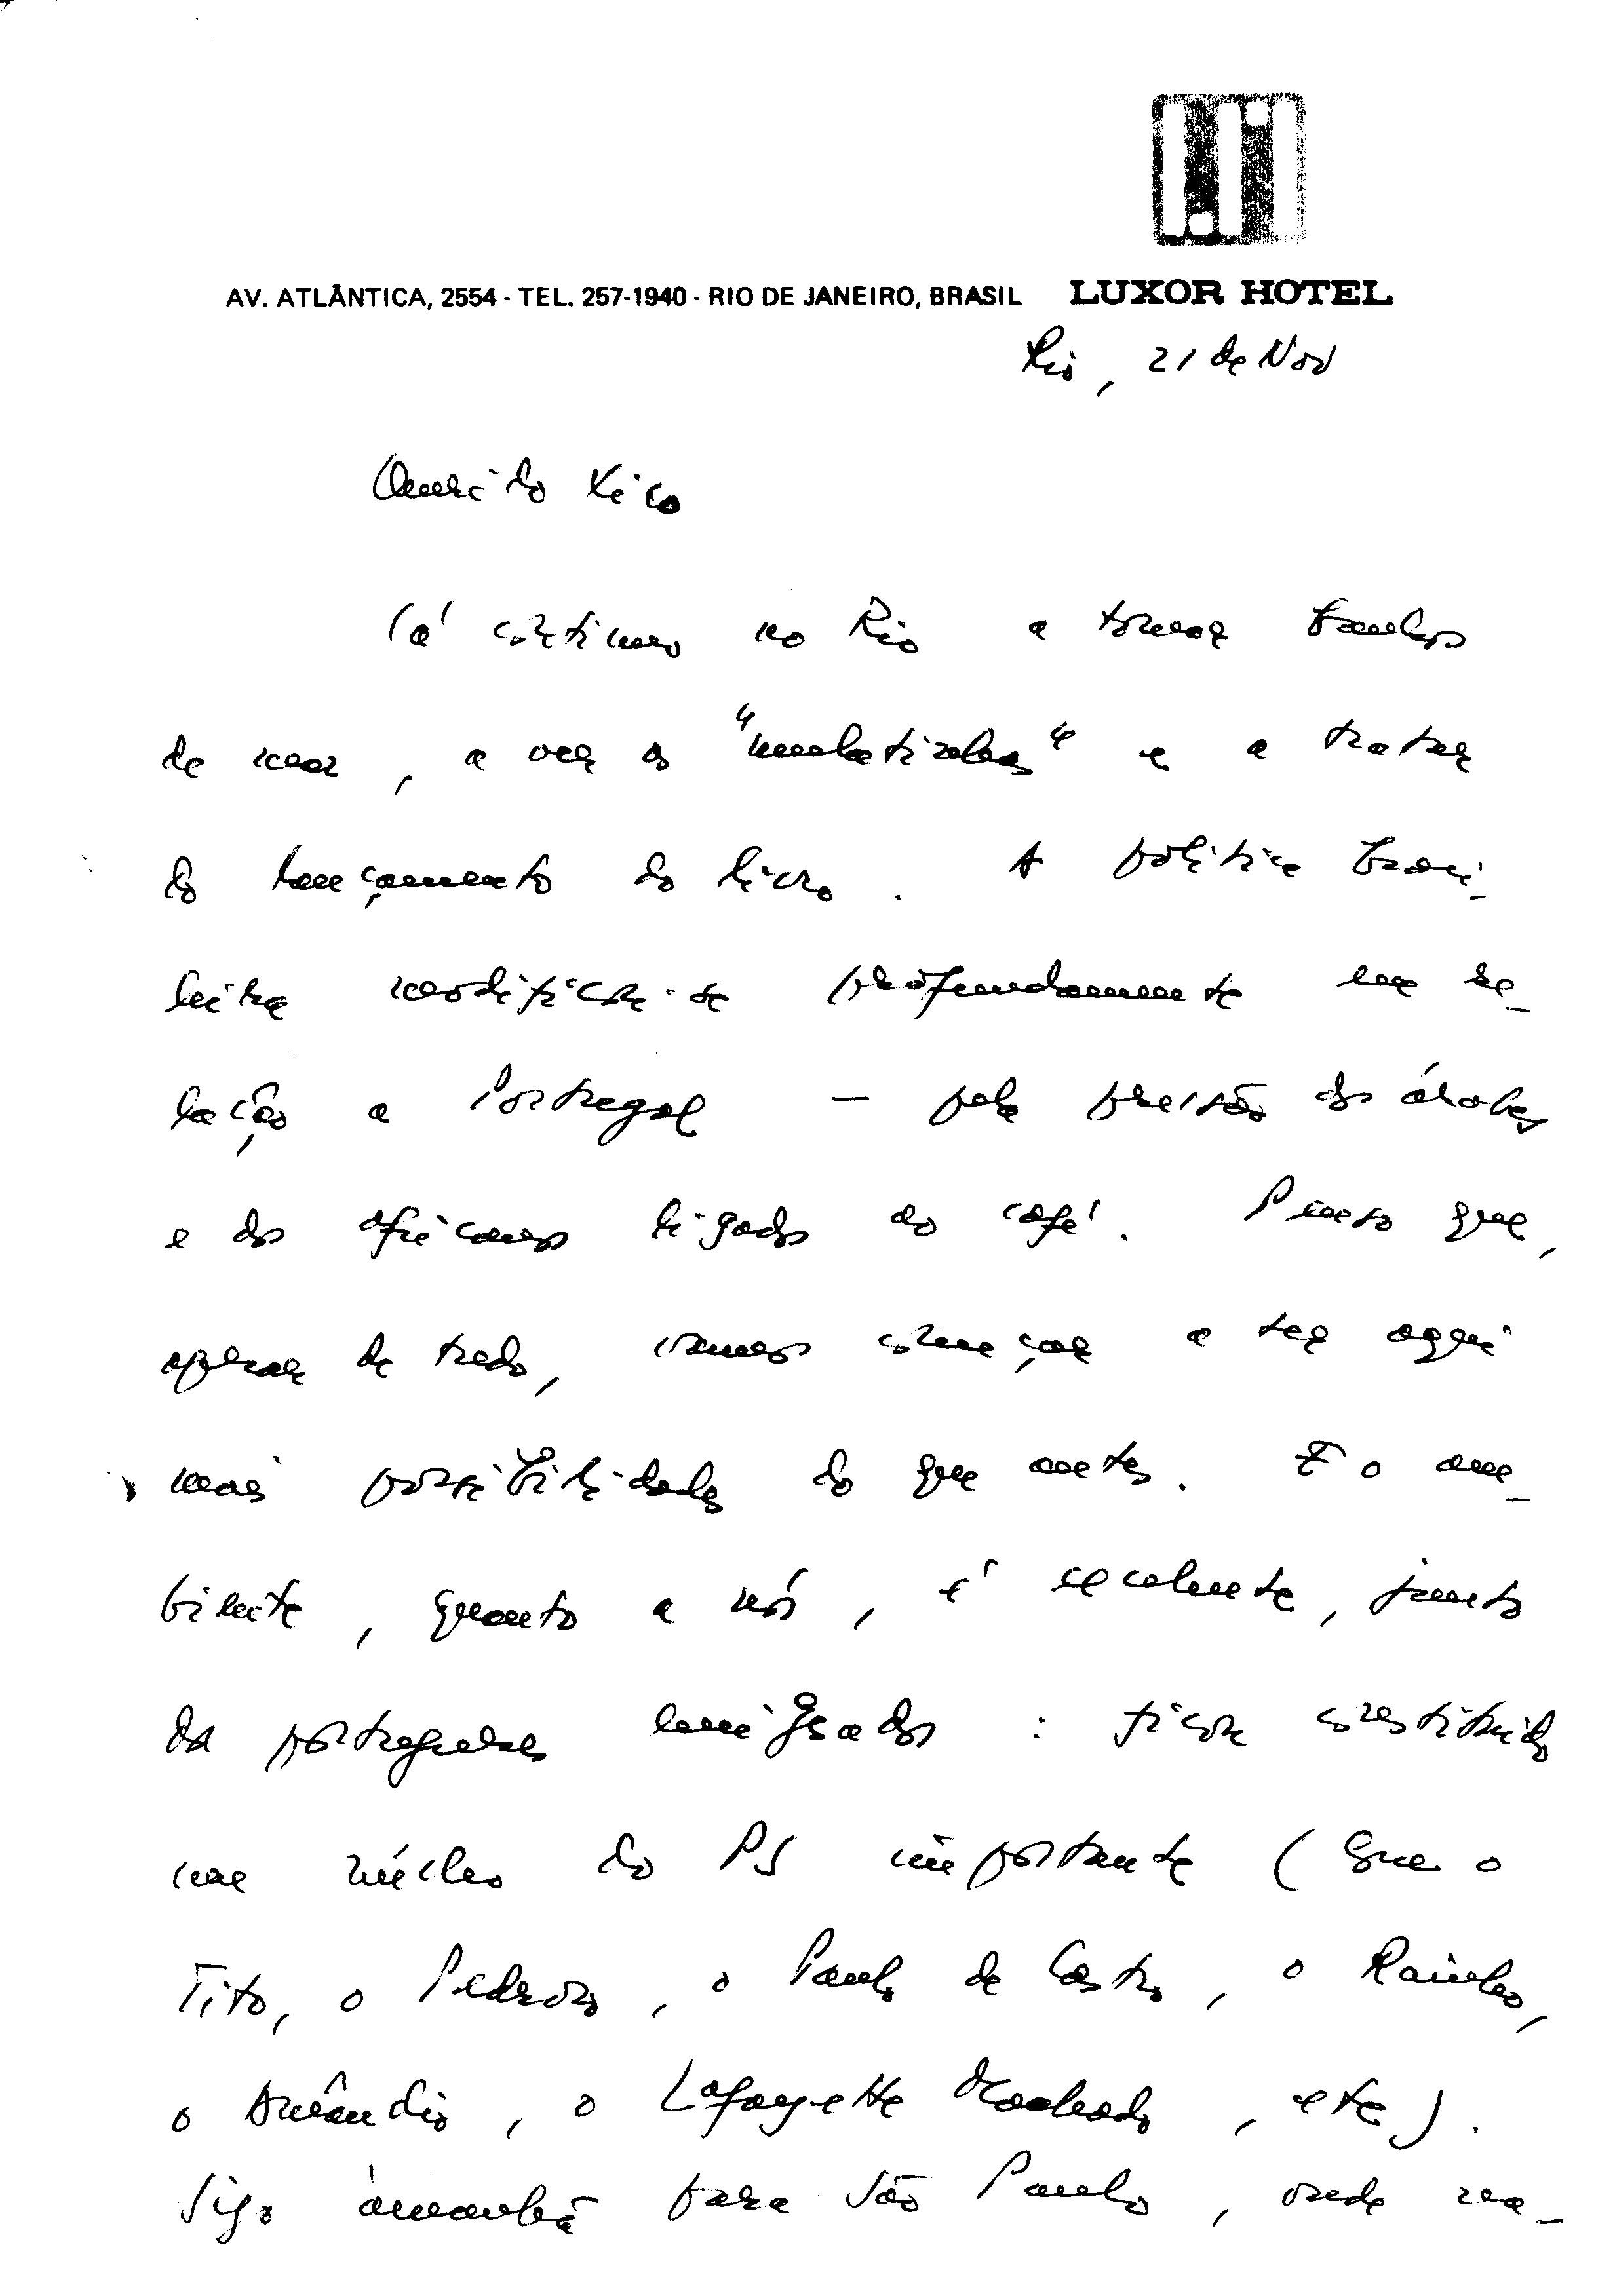 AV. ATLÂNTICA, 2554 - TEL. 257-1940 - RIO DE JANEIRO, BRASIL LUXOR HOTEL
Rio, 21 de Nov
Querido Xico
Cá continuo no Rio a tomar banhos
de mar, a ver as "mulatinhas" e a tratar
do lançamento do livro. A política brasi-
leira modificou-se profundamente em re-
lação a Portugal — pela pressão dos árabes
e dos africanos ligados ao café. Penso que,
apesar de tudo, vamos começar a ter aqui
mais possibilidades do que antes. E o am-
biente, quanto a nós, é excelente, junto
da portugueses emigrados: ficou constituido
um núcleo do PS importante (que o
Tito, o Pedroso, o Paulo de Castro, o Rainho,
o Amândio, o Lafayette Machado, etc).
Sigo àmanhã para São Paulo, onde rea-